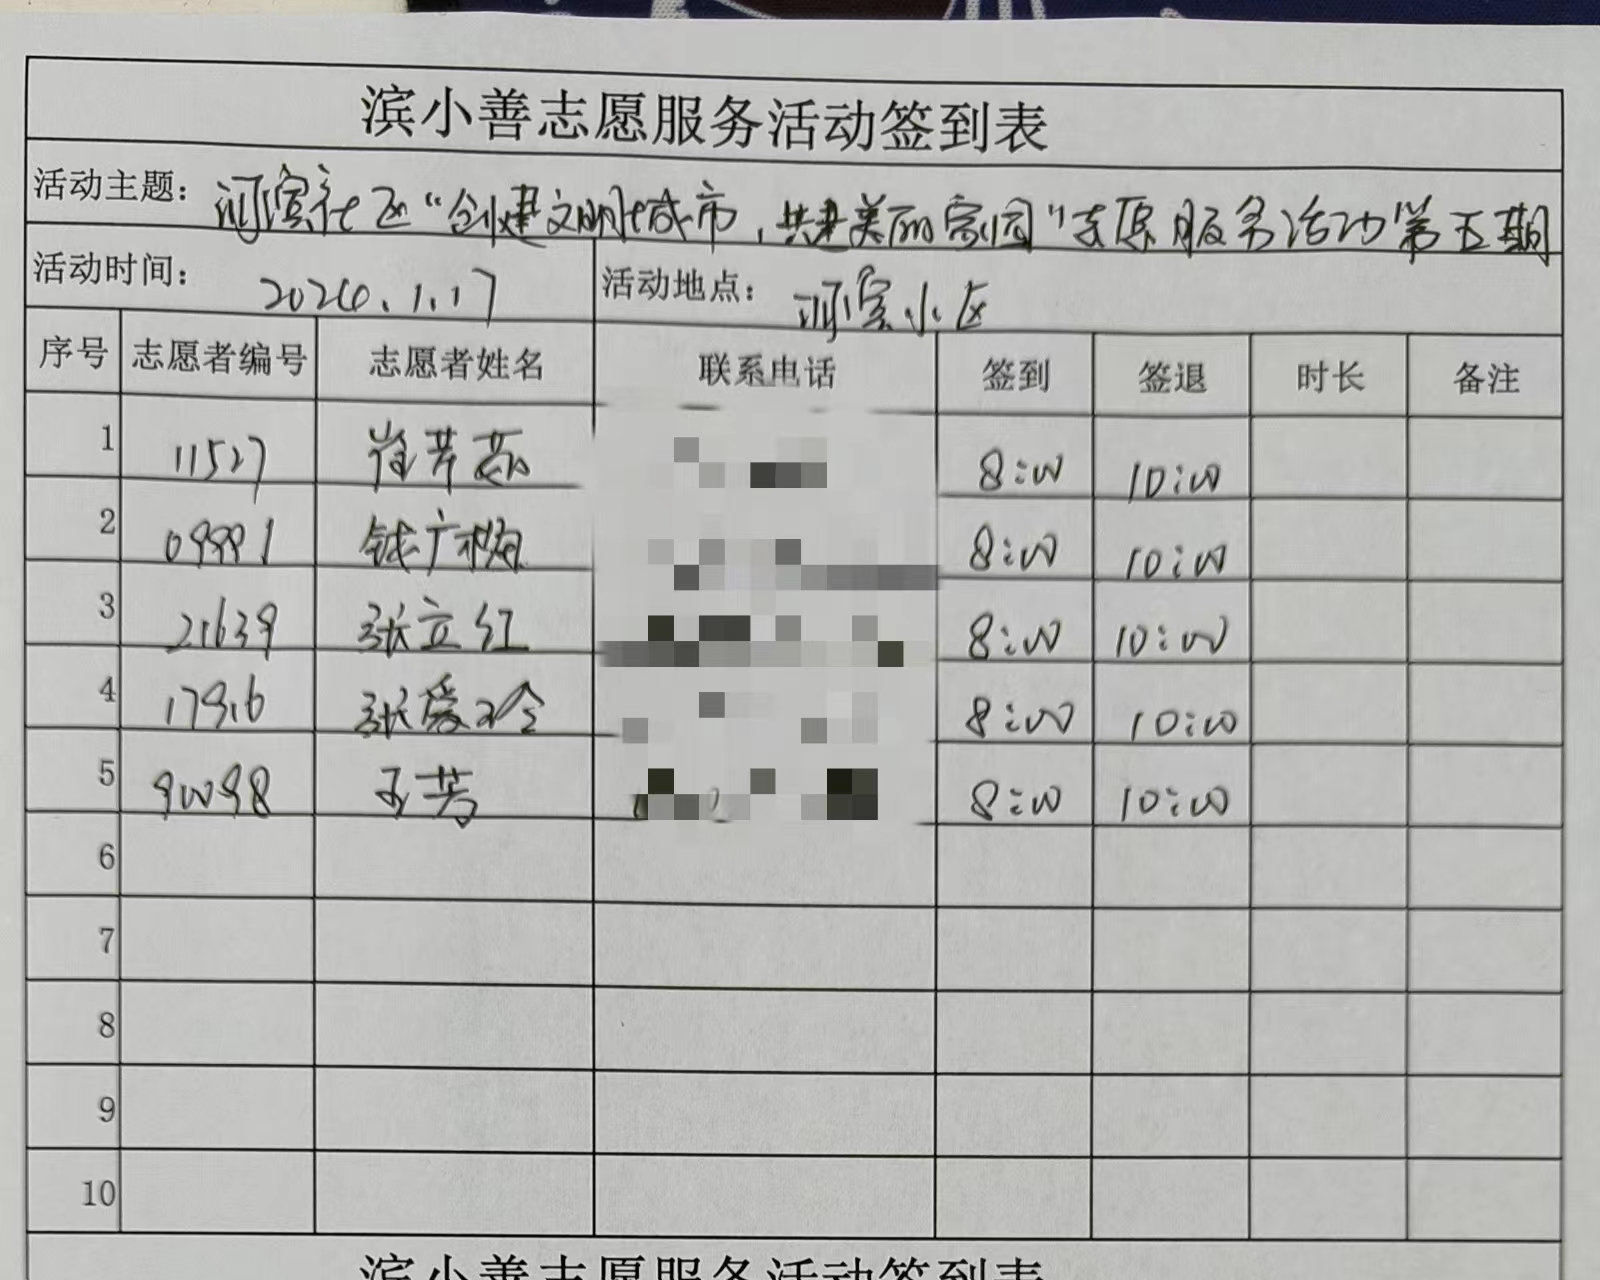 滨小善志愿服务活动签到表
活动主题: 河滨社区“创建文明城市,共建美丽家园”志愿服务活动第五期
活动时间: 2026.1.17 活动地点: 河滨小区
序号 志愿者编号 志愿者姓名 联系电话 签到 签退 时长 备注
1 11527 8:00 10:00
2 钱广梅 8:00 10:00
3 21639 张立红 8:00 10:00
4 17916 张爱玲 8:00 10:00
5 90098 王芳 8:00 10:00
6
7
8
9
10
滨小善志愿服务活动签到表